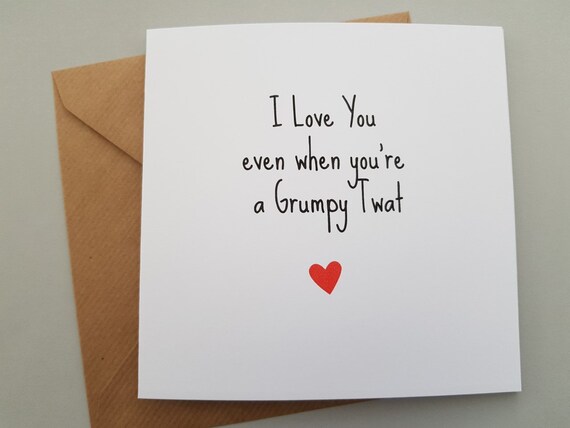 I Love You
even when you're
a Grumpy Twat